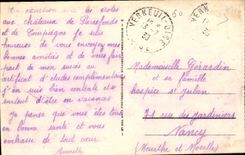 En excursion avec les écoles
aux châteaux de Pierrefonds
et de Compiègne je suis
heureuse de vous envoyer mes
bonnes amitiés et de vous faire
part de mon succès au
certificat d'études complémentaires
j'en suis bien contente
d'être en vacances
Je pense que vous êtes tous
en bonne santé et vous
embrasse de tout cœur
VERNEUIL
VERN
60
Mademoiselle Girardin
et sa famille
hospice St Julien
21 rue des jardiniers
Nancy
(Meurthe et Moselle)